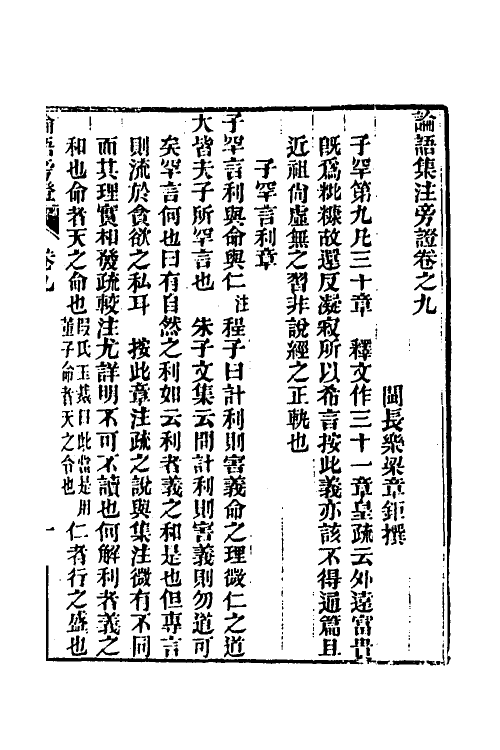 論語集注旁證卷之九
閩長樂梁章鉅撰
子罕第九凡三十章　釋文作三十一章皇疏云外遠富貴
旣爲粃糠故還反凝寂所以希言按此義亦該不得通篇且
近祖尙虛無之習非說經之正軌也
子罕言利章
子罕言利與命與仁注程子曰計利則害義命之理微仁之道
大皆夫子所罕言也　朱子文集云問計利則害義則勿道可
矣罕言何也曰有自然之利如云利者義之和是也但專言
則流於貪欲之私耳　按此章注疏之說與集注微有不同
而其理實相發疏較注尤詳明不可不讀也何解利者義之
和也命者天之命也段氏玉裁曰此當是用董子命者天之令也仁者行之盛也
論語旁證　卷九　一